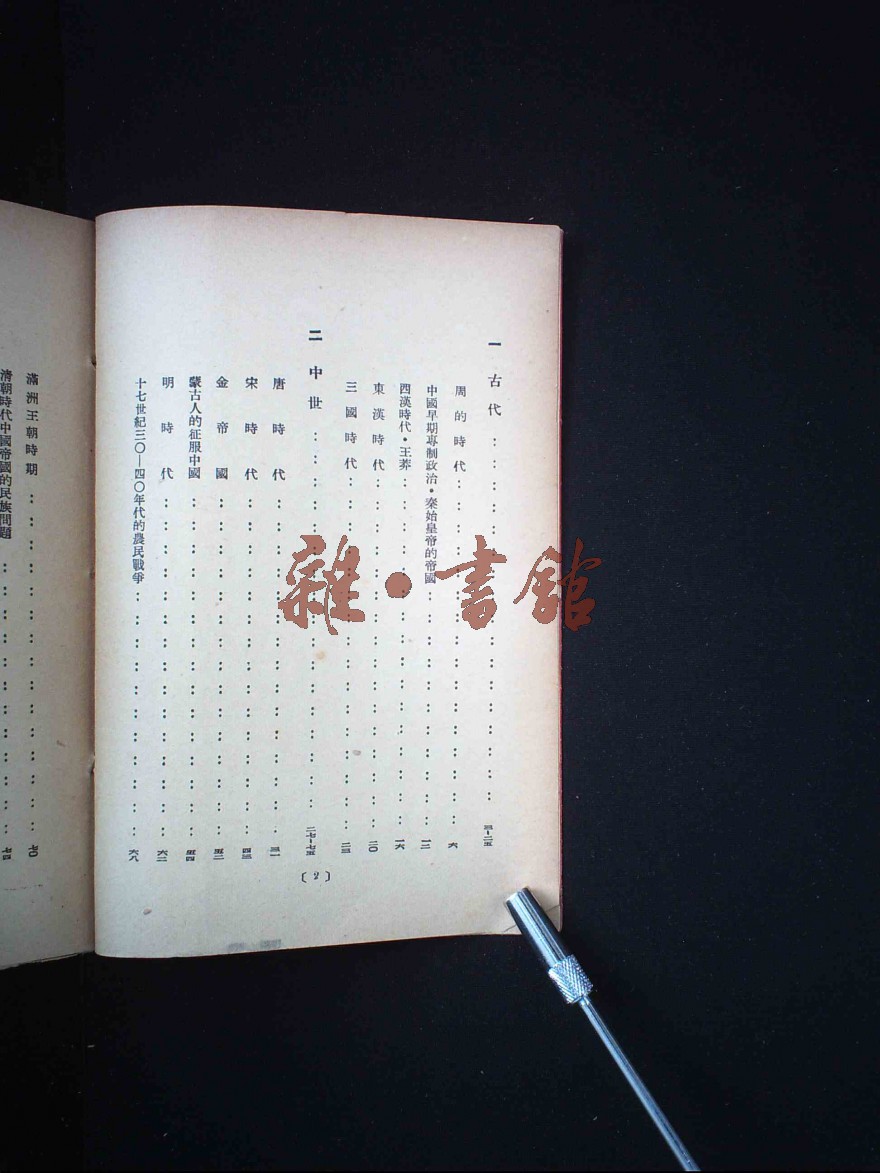 一 古代 ………………… 三-二五
周的時代 ………………… 六
中國早期專制政治·秦始皇帝的帝國 ………………… 一二
西漢時代·王莽 ………………… 一六
東漢時代 ………………… 二〇
三國時代 ………………… 二三
二 中世 ………………… 二七-七五
唐時代 ………………… 三一
宋時代 ………………… 四三
金帝國 ………………… 五二
蒙古人的征服中國 ………………… 五四
明時代 ………………… 六二
十七世紀三〇—四〇年代的農民戰爭 ………………… 六八
〔2〕
滿洲王朝時期 ………………… 七〇
清朝時代中國帝國的民族問題 ………………… 七四
雜·書館